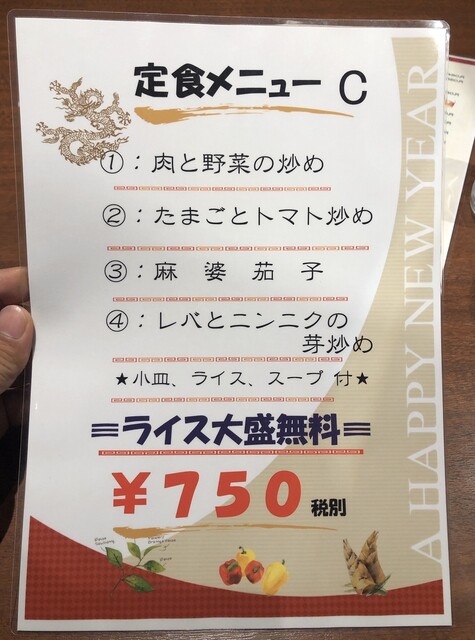 定食メニュー C
①：肉と野菜の炒め
②：たまごとトマト炒め
③：麻婆茄子
④：レバとニンニクの
芽炒め
★小皿、ライス、スープ 付★
ライス大盛無料
￥750 税別
A HAPPY NEW YEAR